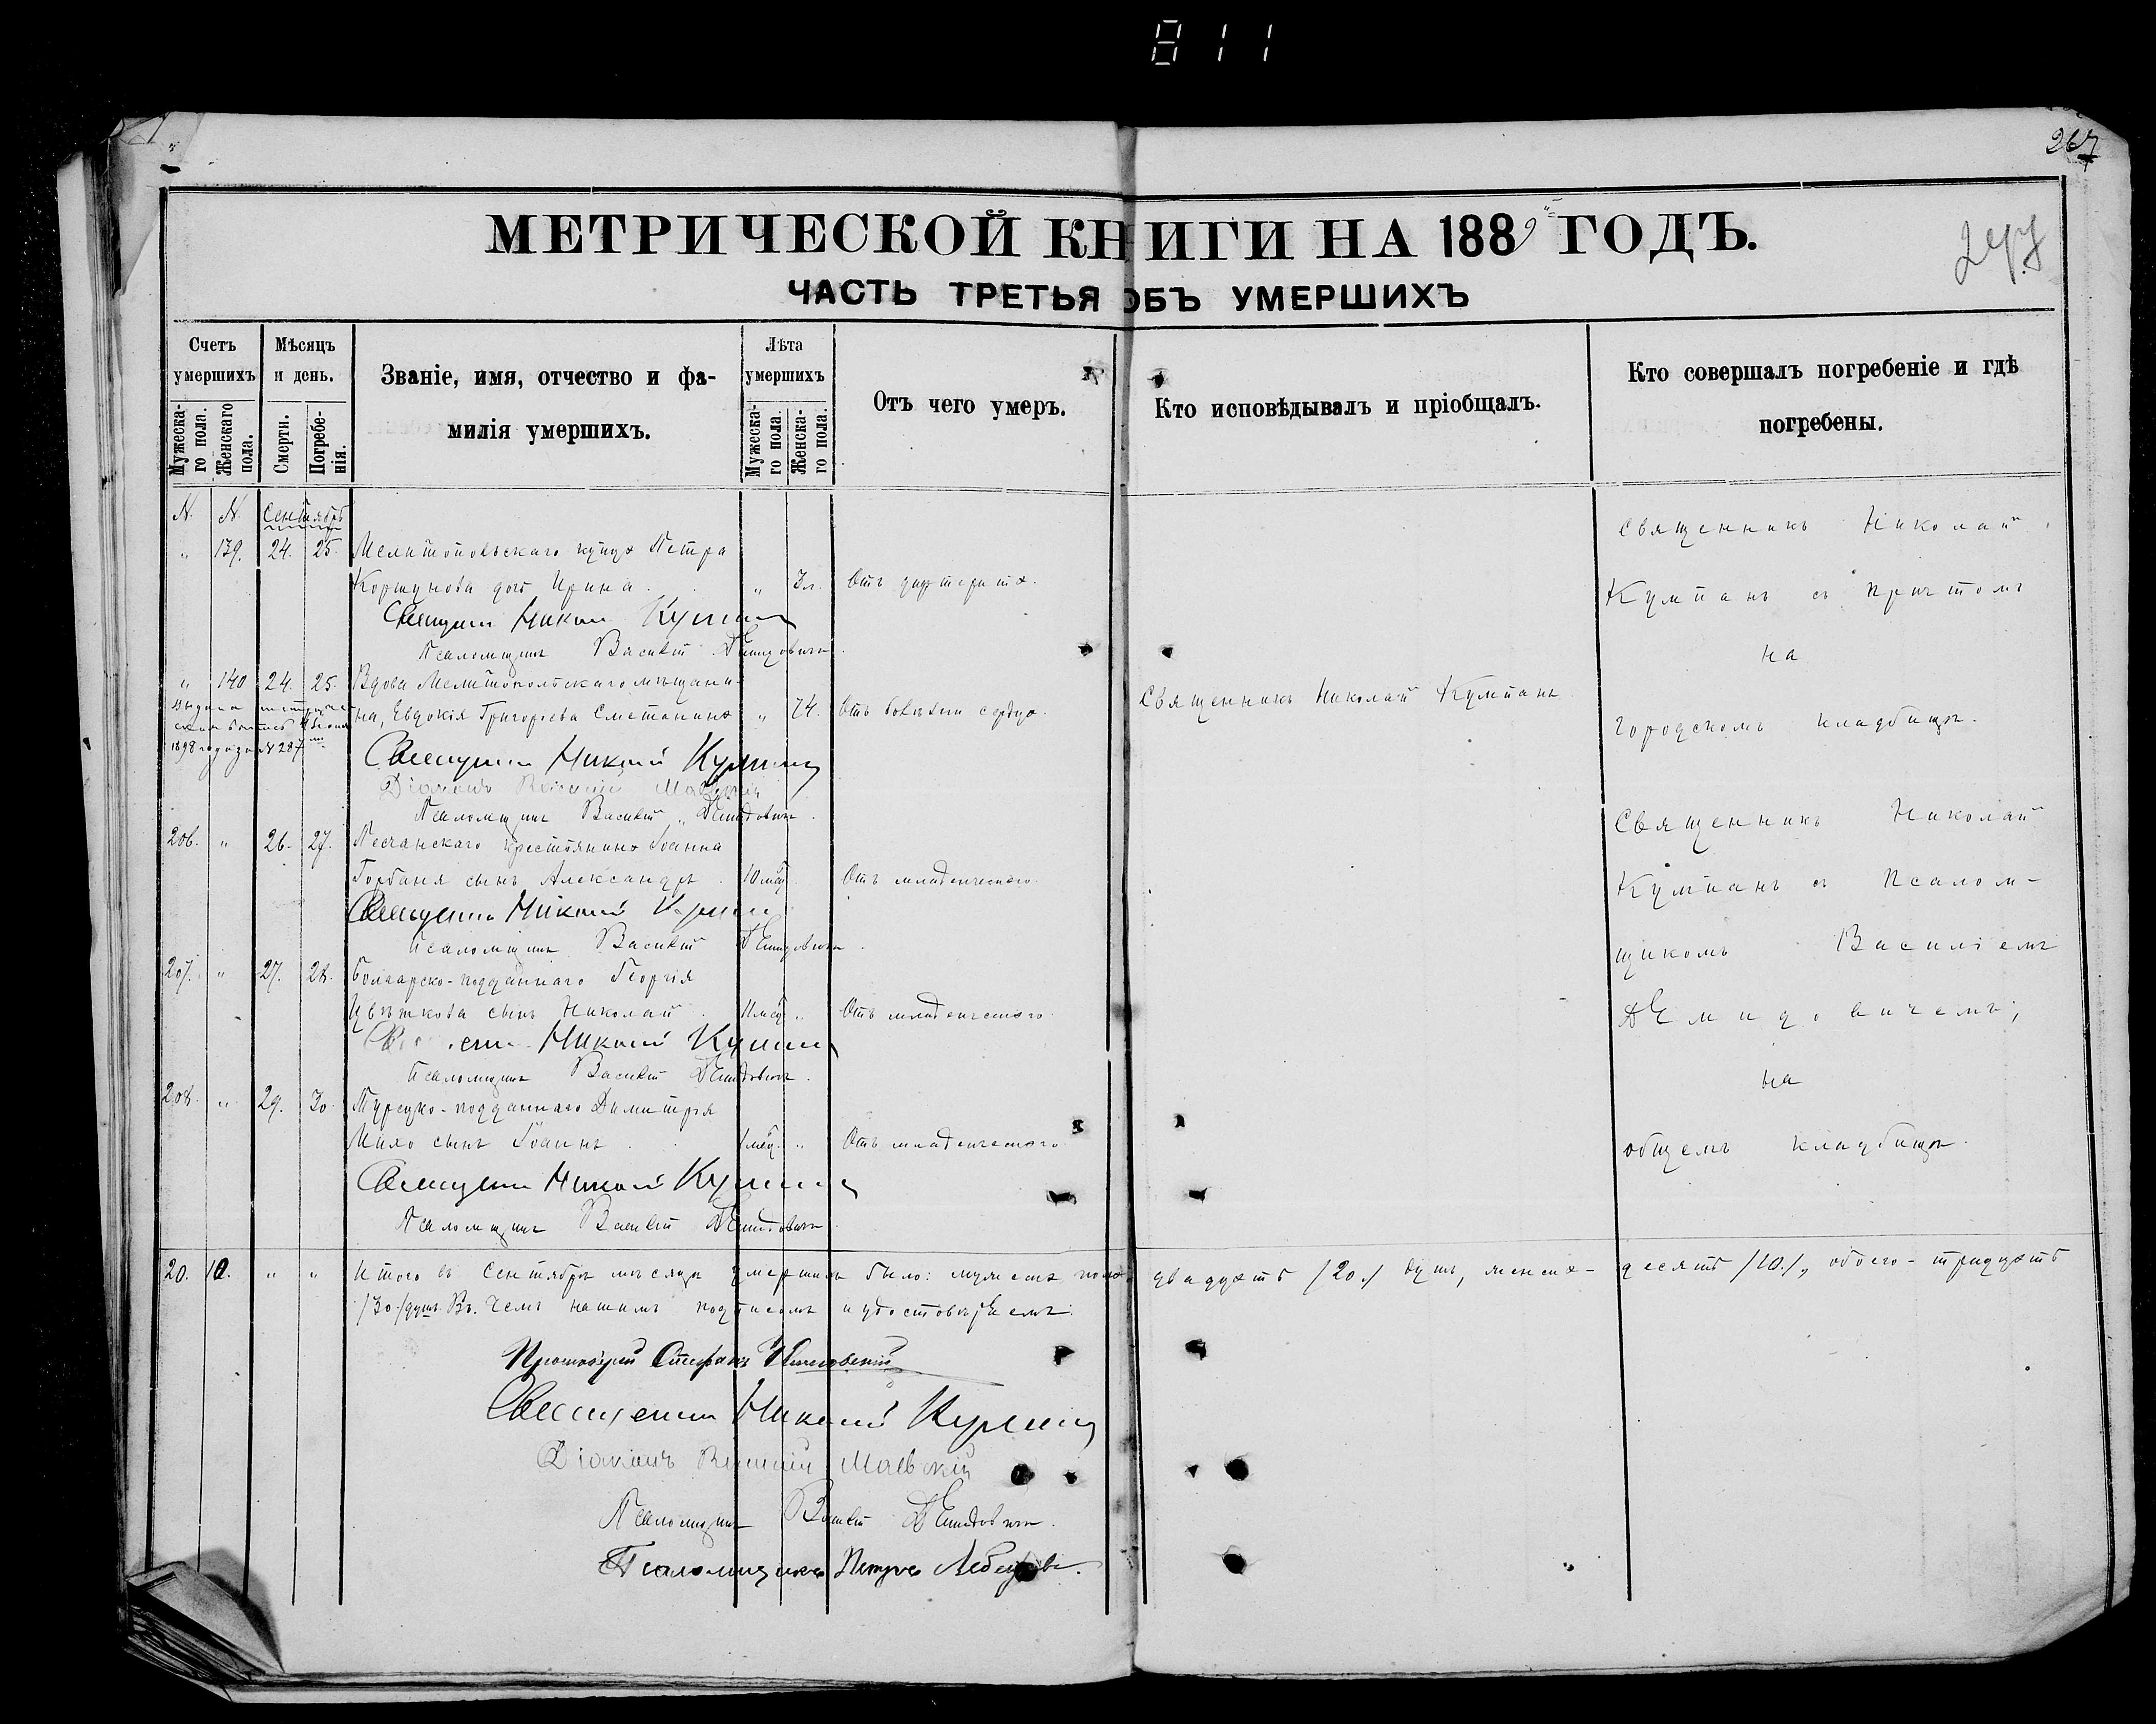 811
267
МЕТРИЧЕСКОЙ КНИГИ НА 1889 ГОДЪ.
ЧАСТЬ ТРЕТЬЯ ОБЪ УМЕРШИХЪ
Счетъ умершихъ
Мужеска-го пола.
Женскаго пола.
Мѣсяцъ и день.
Смерти.
Погребе-нія.
Званіе, имя, отчество и фа-
милія умершихъ.
Лѣта умершихъ
Мужеска-го пола.
Женска-го пола.
Отъ чего умеръ.
Кто исповѣдывалъ и пріобщалъ.
Кто совершалъ погребеніе и гдѣ
погребены.
N. N. Сентябрь
„ 139. 24. 25. Мелитопольскаго купца Петра
Коршунова дочь Ирина „ 3 л. Отъ дифтерита.
Священникъ Николай Кумпанъ
Псаломщикъ Василій Демидовичъ.
Священникъ Николай
Кумпанъ съ причтомъ
на
городскомъ кладбищѣ.
„ 140 24. 25. Вдова Мелитопольскаго мѣщани-
на, Евдокія Григорьева Сметанина „ 74. Отъ болѣзни сердца. Священникъ Николай Кумпанъ
1898 года за N 287
Священникъ Николай Кумпанъ
Діаконъ Маевскій
Псаломщикъ Василій Демидовичъ.
206. „ 26. 27. Песчанскаго крестьянина Іоанна
Горбаня сынъ Александръ. 10 мѣс. Отъ младенческаго.
Священникъ Николай Кумпанъ
Псаломщикъ Василій Демидовичъ.
Священникъ Николай
Кумпанъ съ псалом-
щикомъ Василіемъ
Демидовичемъ;
на
общемъ кладбищѣ.
207. „ 27. 28. Болгарско-подданнаго Георгія
Цвѣткова сынъ Николай. 11 мѣс. „ Отъ младенческаго.
Священникъ Николай Кумпанъ
Псаломщикъ Василій Демидовичъ.
208. „ 29. 30. Турецко-подданнаго Димитрія
Михо сынъ Іоаннъ. 1 мѣс. „ Отъ младенческаго
Священникъ Николай Кумпанъ
Псаломщикъ Василій Демидовичъ
20. 10. „ „ Итого въ Сентябрѣ мѣсяцѣ умершихъ было: мужеска пола двадцать /20./ душъ, женска- десять /10./, обоего- тридцать
/30./ душъ. Въ чемъ нашимъ подписомъ и удостовѣряемъ:
Протоіерей Стефанъ
Священникъ Николай Кумпанъ
Діаконъ Маевскій
Псаломщикъ Василій Демидовичъ.
Псаломщикъ Петръ